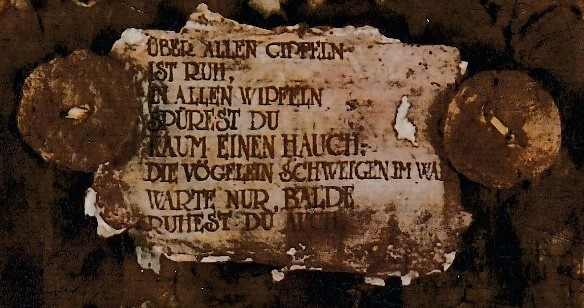 ÜBER ALLEN GIPFELN
IST RUH,
IN ALLEN WIPFELN
SPÜREST DU
KAUM EINEN HAUCH;
DIE VÖGELEIN SCHWEIGEN IM WAL
WARTE NUR, BALDE
RUHEST DU AUCH